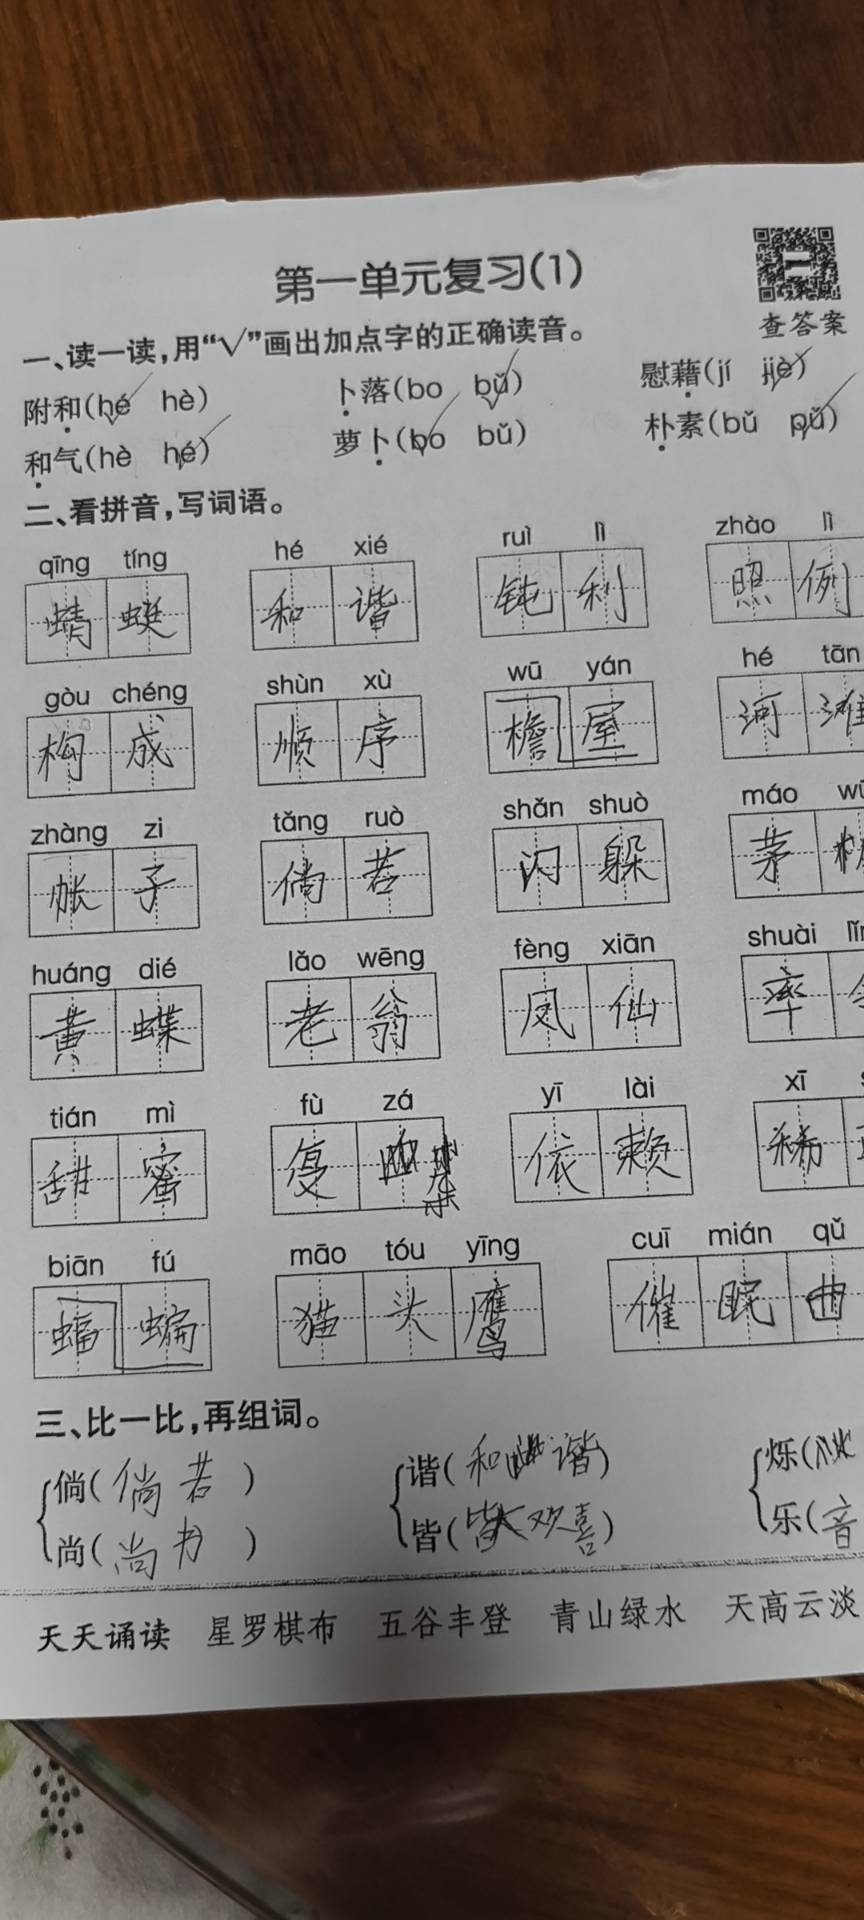 第一单元复习(1)
查答案
一、读一读,用“√”画出加点字的正确读音。
附和(hé hè) 卜落(bo bǔ) 慰藉(jí jiè)
和气(hè hé) 萝卜(bo bǔ) 朴素(bǔ pǔ)
二、看拼音,写词语。
qīng tíng hé xié ruì lì zhào lì
蜻蜓 和谐 钝利 照例
gòu chéng shùn xù wū yán hé tān
构成 顺序 檐屋 河滩
zhàng zi tǎng ruò shǎn shuò máo
帐子 倘若 闪躲 茅
huáng dié lǎo wēng fèng xiān shuài
黄蝶 老翁 凤仙 率
tián mì fù zá yī lài xī
甜蜜 复 依赖 稀
biān fú māo tóu yīng cuī mián qǔ
蝠蝙 猫头鹰 催眠曲
三、比一比,再组词。
倘(倘若) 谐(和谐) 烁(
尚(尚书) 皆(皆大欢喜) 乐(音
天天诵读 星罗棋布 五谷丰登 青山绿水 天高云淡